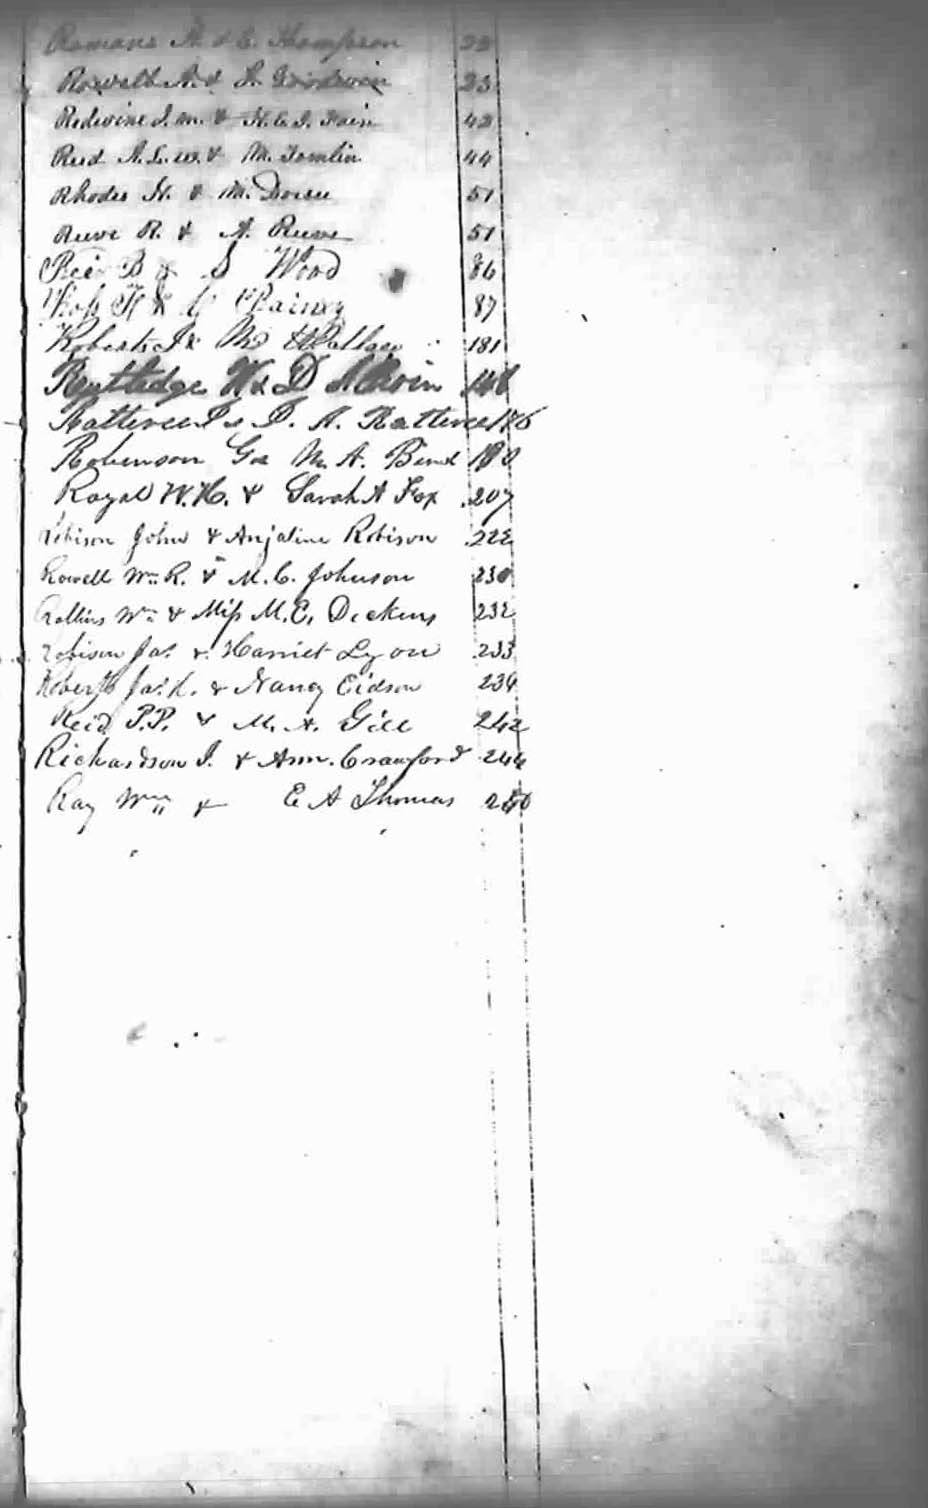 Romans A. & C. Thompson 22
Rowell A. & S. Goodwin 23
Redwine J. M. & H. C. J. Fain 42
Reed A. L. W. & M. Tomlin 44
Rhodes H. & M. 51
Reeve R. & A. Reeve 51
B & S Wood 86
Ross H & 87
Roberts J & M Wallace 181
Rutledge W & D
Ratteree & D. A. Ratteree 176
Robinson G & M. A. 
Royal W. H. & Sarah A Fox 207
Robison John & Anjaline Robison 222
Rowell Wm. R. & M. C. Johnson 230
Rollins Wm & Miss M. E. Dickens 232
Robison Jas. & Harriet Lyon 233
Roberts Jas. & Nancy Eidson 234
Reid P. P. & M. A. Gill 242
Richardson J. & Ann. Crawford 244
Ray Wm & E A Thomas